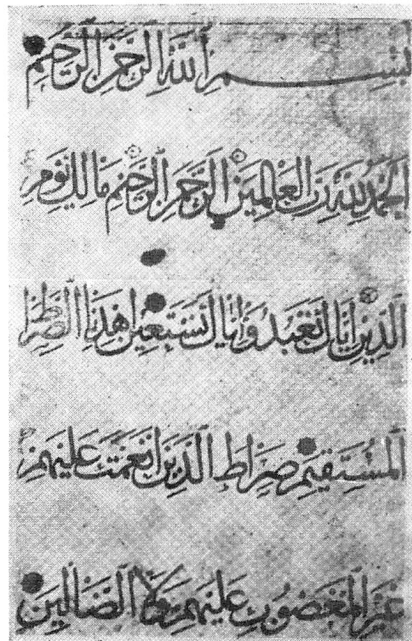 بِسْمِ ٱللَّهِ ٱلرَّحْمَٰنِ ٱلرَّحِيمِ
الْحَمْدُ لِلَّهِ رَبِّ الْعَالَمِينَ الرَّحْمَٰنِ الرَّحِيمِ مَالِكِ يَوْمِ
الدِّينِ إِيَّاكَ نَعْبُدُ وَإِيَّاكَ نَسْتَعِينُ اهْدِنَا الصِّرَاطَ
الْمُسْتَقِيمَ صِرَاطَ الَّذِينَ أَنْعَمْتَ عَلَيْهِمْ
غَيْرِ الْمَغْضُوبِ عَلَيْهِمْ وَلَا الضَّالِّينَ